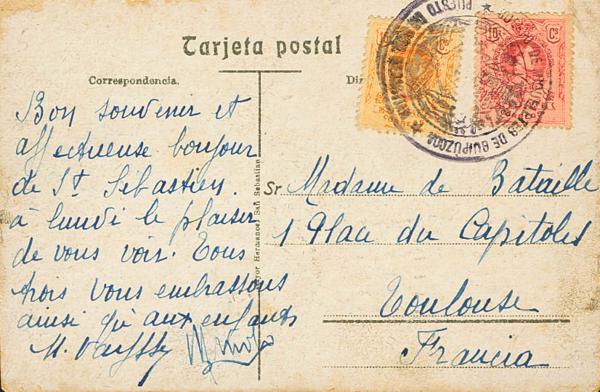 Tarjeta postal
Correspondencia.
Bon souvenir et
affectueuse bonjour
de St Sébastien.
à lundi le plaisir
de vous voir. Tous
trois vous embrassons
ainsi qu'aux enfants
M.
Hermanos San Sebastian
Sr Madame de Bataille
1 Place du Capitole
Toulouse
Francia
10 Cs
DE GUIPUZCOA